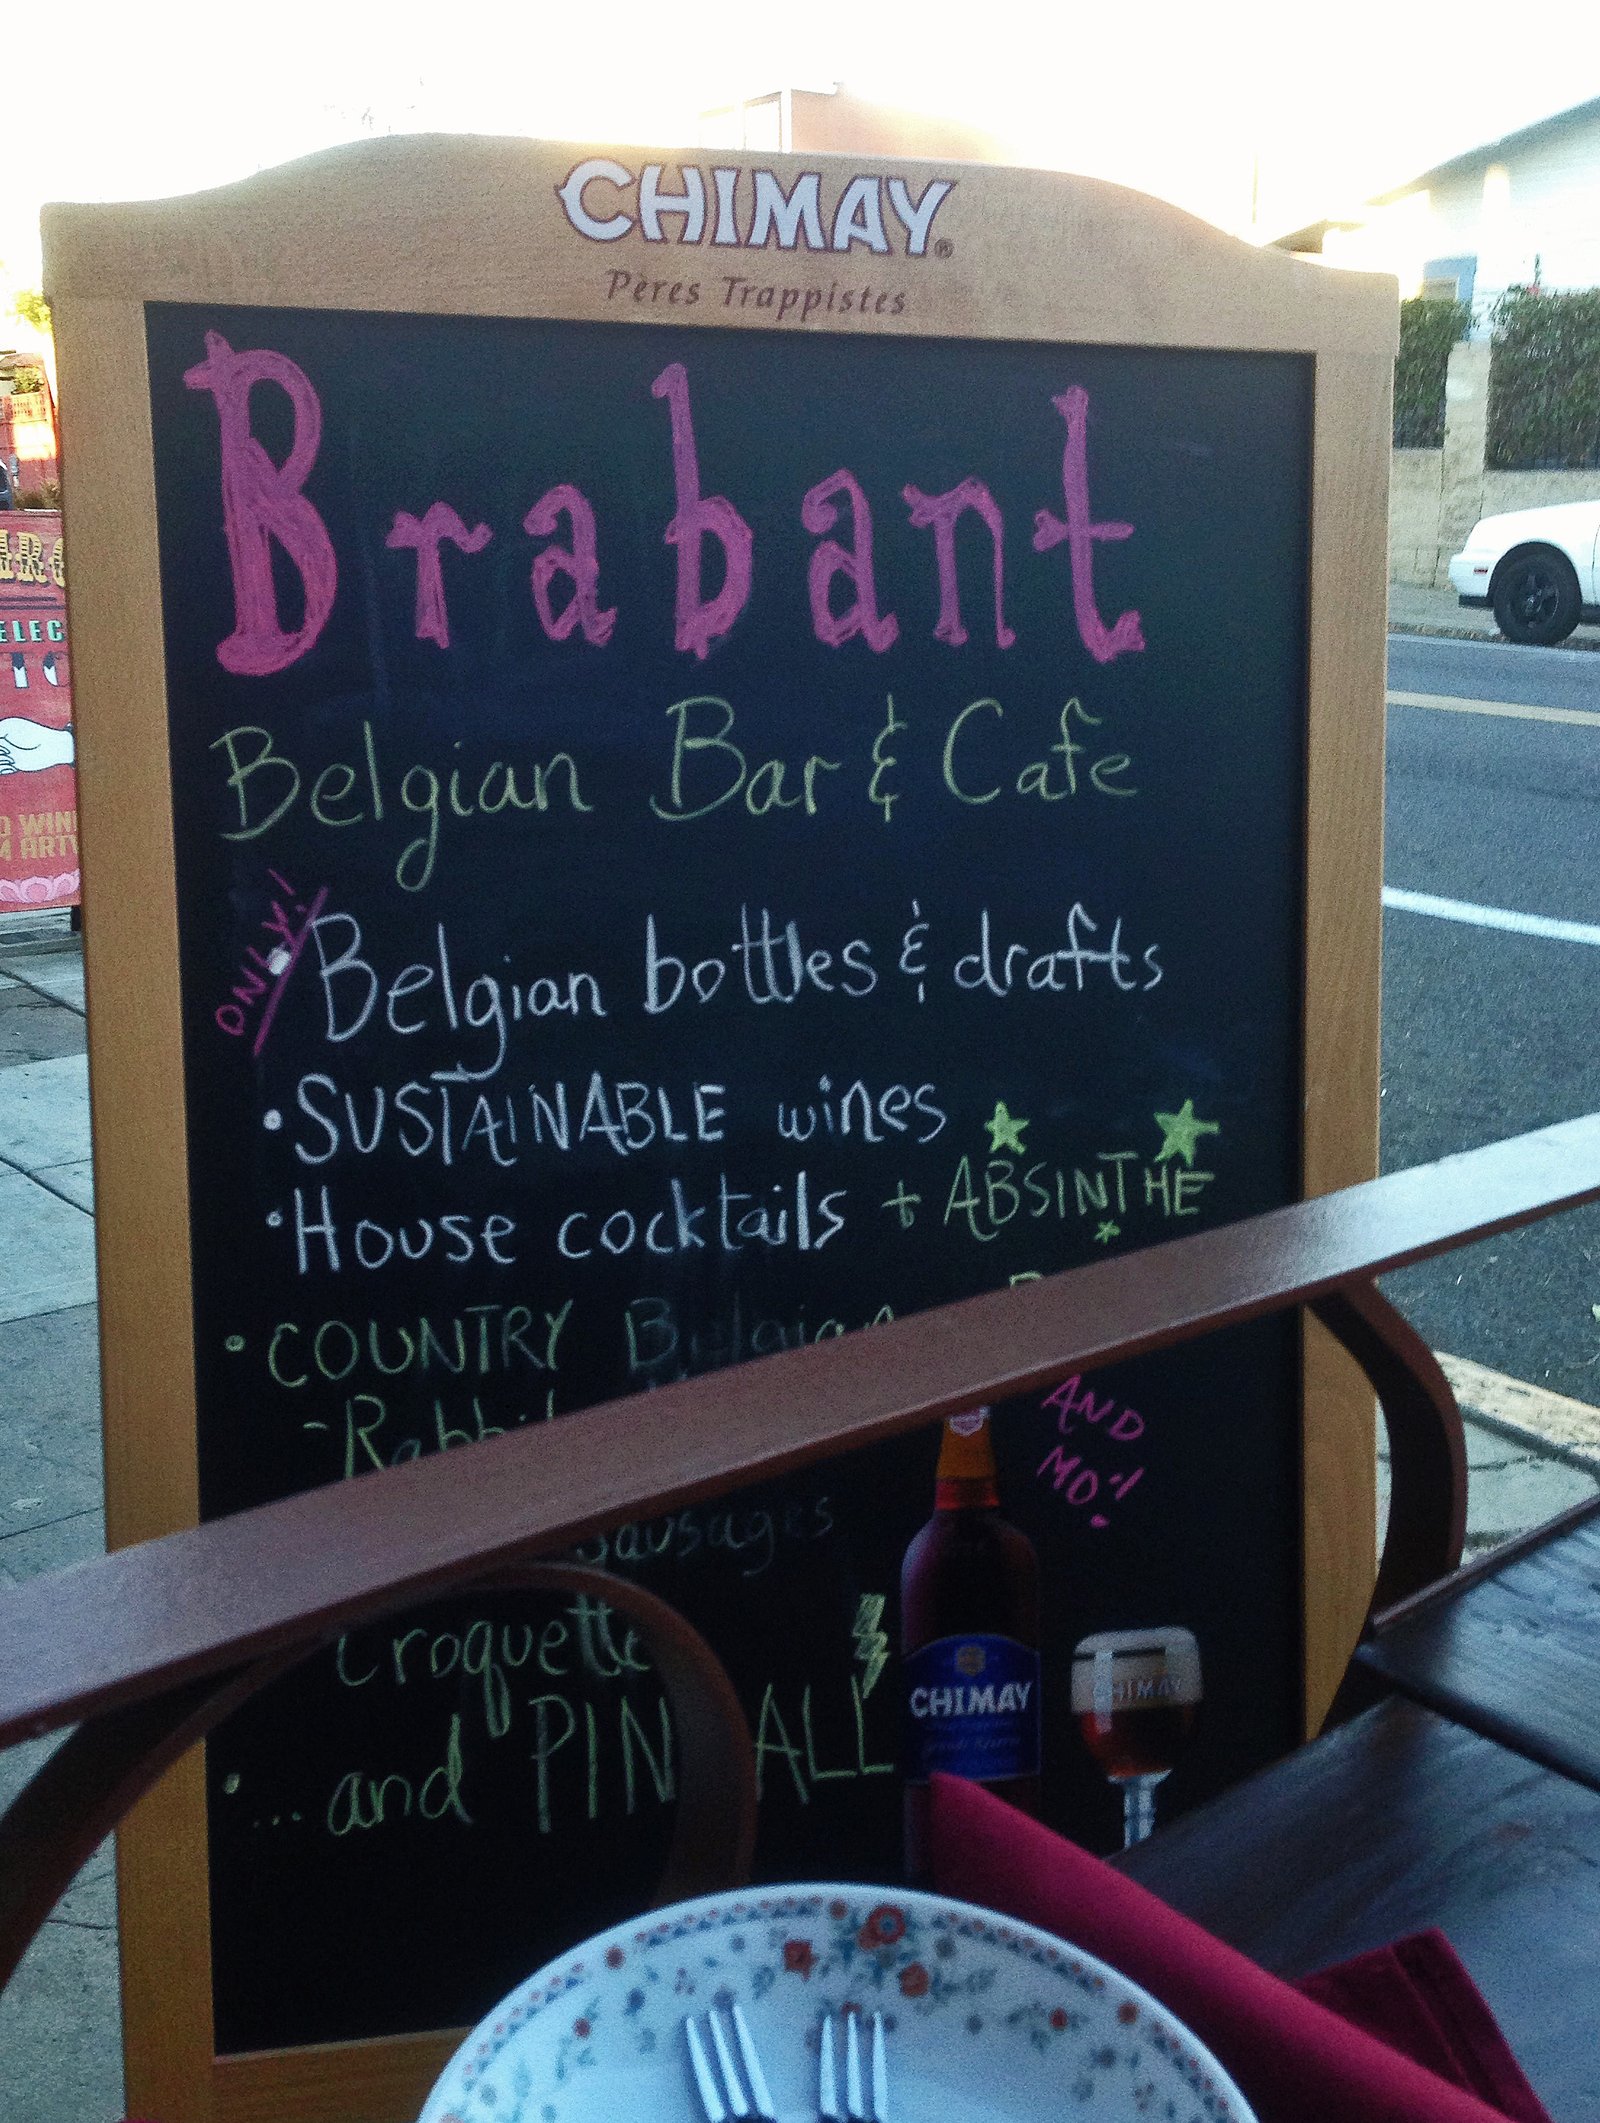 CHIMAY®
Pères Trappistes
Brabant
Belgian Bar & Cafe
ONLY!
Belgian bottles & drafts
• SUSTAINABLE wines
• House cocktails + ABSINTHE
• COUNTRY Belgian
AND
MO
Sausages
Croquette
• ... and PIN ALL
CHIMAY
CHIMAY
ELEC